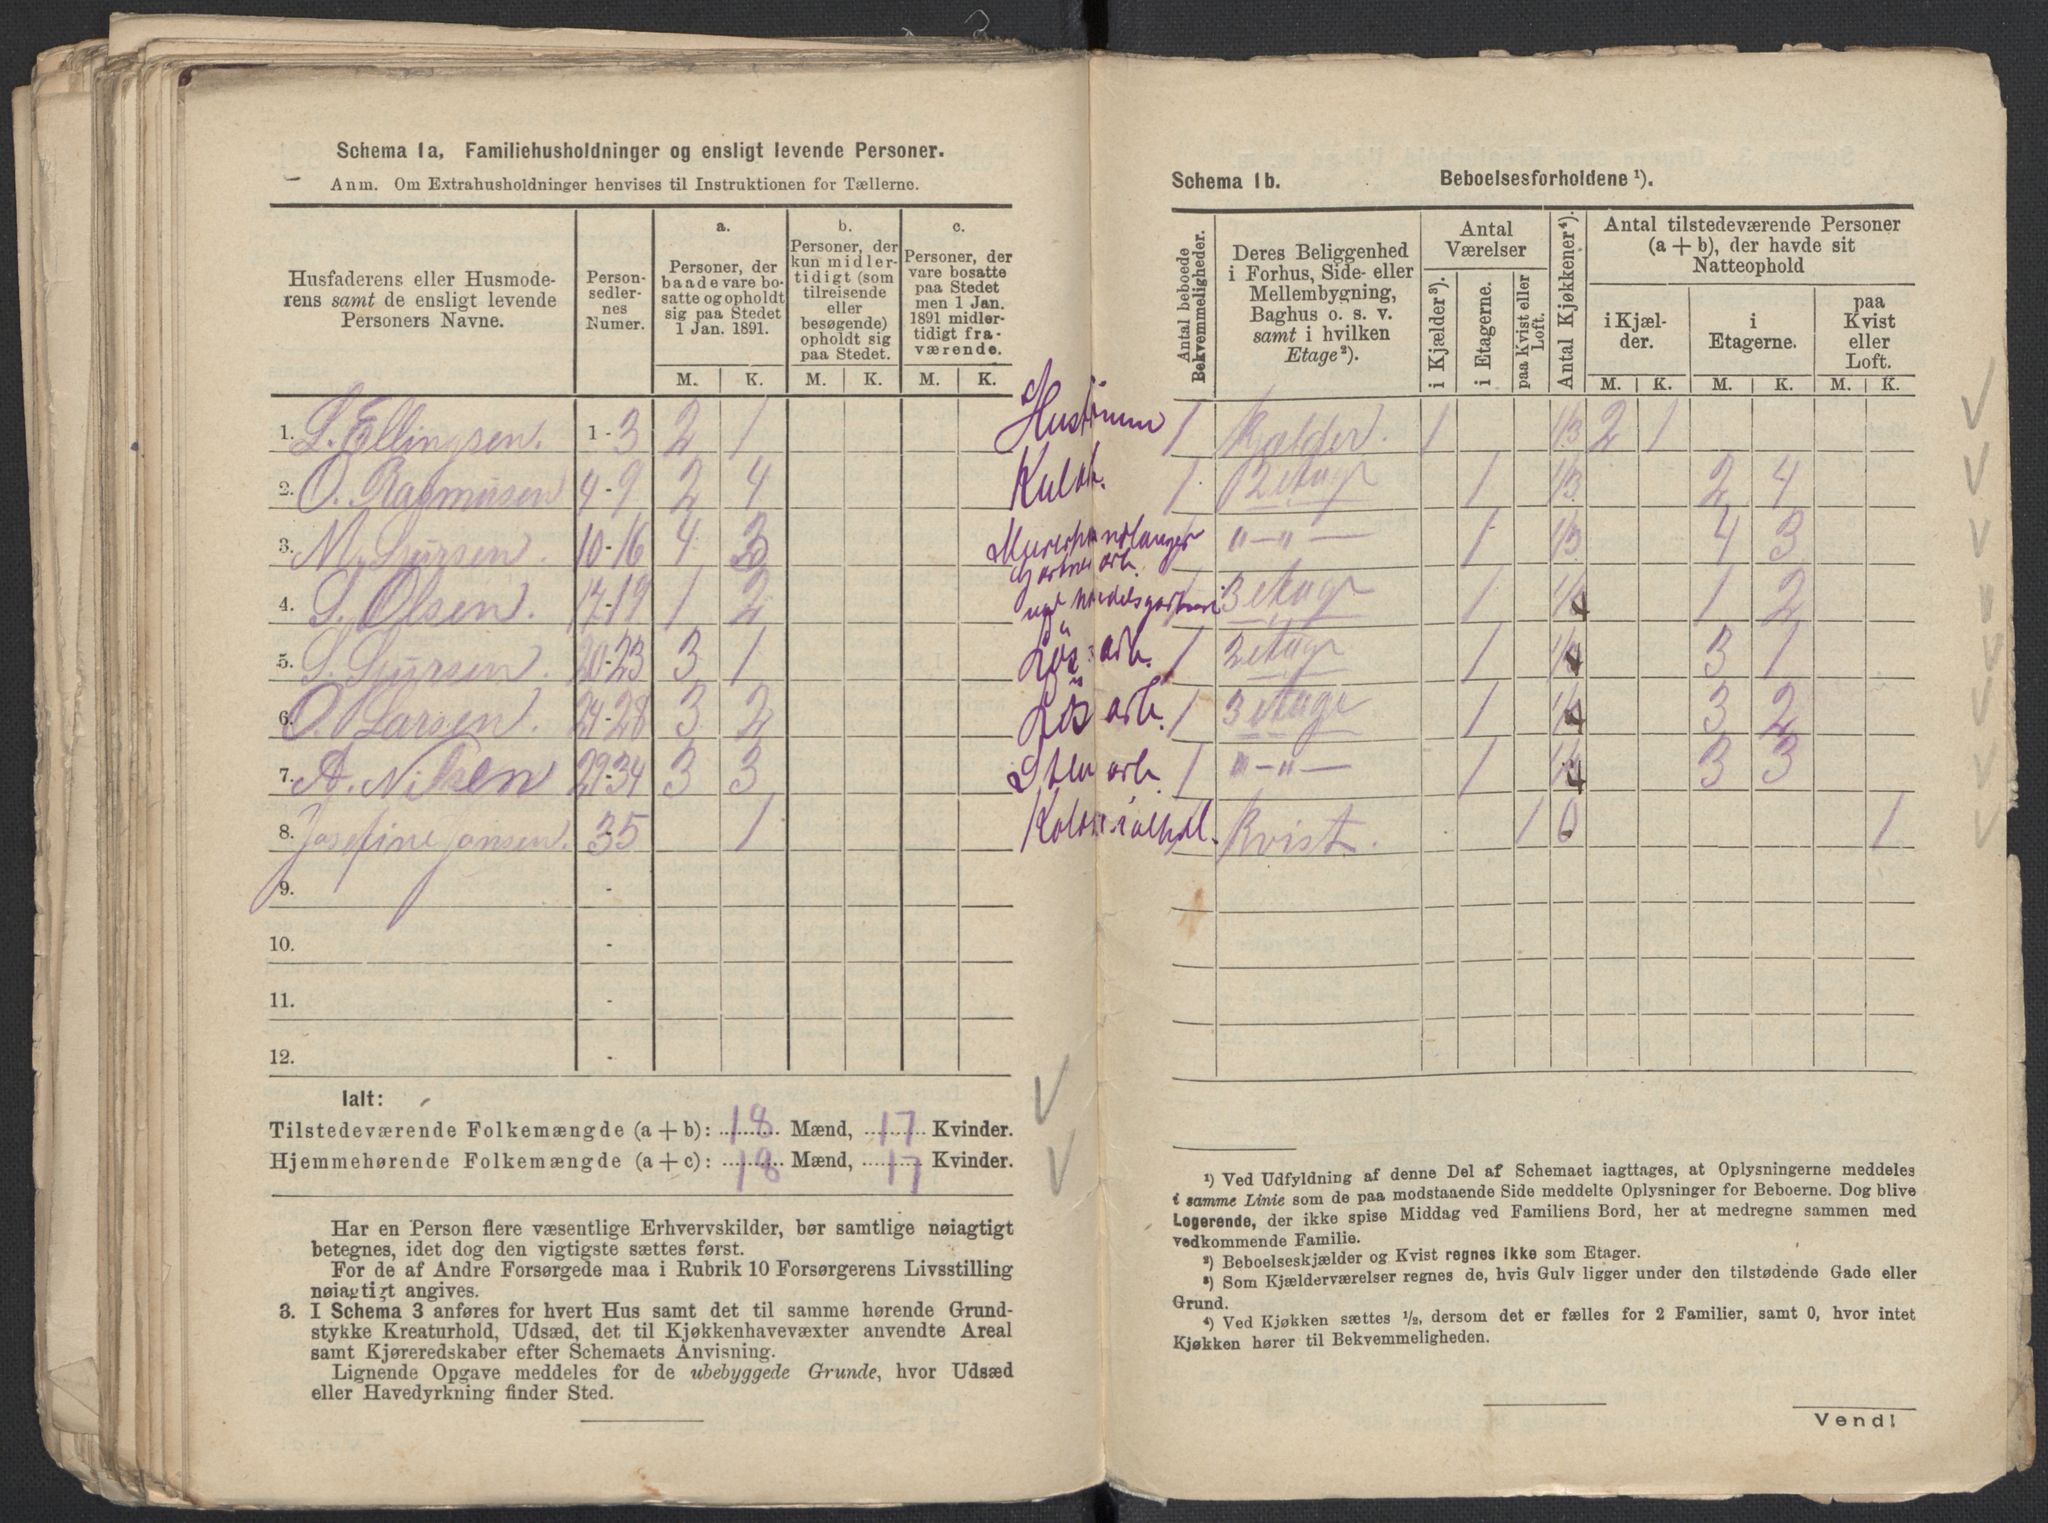 Schema 1a, Familiehusholdninger og ensligt levende Personer.
Anm. Om Extrahusholdninger henvises til Instruktionen for Tællerne.
Husfaderens eller Husmoderens samt de ensligt levende Personers Navne.
Person-sedler-nes Numer.
a. Personer, der baade vare bosatte og opholdt sig paa Stedet 1 Jan. 1891.
b. Personer, der kun midlertidigt (som tilreisende eller besøgende) opholdt sig paa Stedet.
c. Personer, der vare bosatte paa Stedet men 1 Jan. 1891 midlertidigt fraværende.
M. K. M. K. M. K.
1. L. Ellingsen. 1-3 2 1
2. O. Rasmusen 4-9 2 4
3. M. Lursen. 10-16 4 3
4. S. Olsen. 17-19 1 2
5. S. Lursen. 20-23 3 1
6. O. Larsen. 24-28 3 2
7. A. Nilsen 29-34 3 3
8. Josefine Jansen. 35 1
9. -
10. -
11. -
12. -
Ialt:
Tilstedeværende Folkemængde (a + b): 18 Mænd, 17 Kvinder.
Hjemmehørende Folkemængde (a + c): 18 Mænd, 17 Kvinder.
Har en Person flere væsentlige Erhvervskilder, bør samtlige nøiagtigt
betegnes, idet dog den vigtigste sættes først.
For de af Andre Forsørgede maa i Rubrik 10 Forsørgerens Livsstilling
nøiagtigt angives.
3. I Schema 3 anføres for hvert Hus samt det til samme hørende Grund-
stykke Kreaturhold, Udsæd, det til Kjøkkenhavevæxter anvendte Areal
samt Kjøreredskaber efter Schemaets Anvisning.
Lignende Opgave meddeles for de ubebyggede Grunde, hvor Udsæd
eller Havedyrkning finder Sted.
Schema 1b. Beboelsesforholdene ¹).
Antal beboede Bekvemmeligheder.
Deres Beliggenhed i Forhus, Side- eller Mellembygning, Baghus o. s. v. samt i hvilken Etage²).
Antal Værelser
i Kjælder³).
i Etagerne.
paa Kvist eller Loft.
Antal Kjøkkener⁴).
Antal tilstedeværende Personer (a + b), der havde sit Natteophold
i Kjæl-der.
i Etagerne.
paa Kvist eller Loft.
M. K. M. K. M. K.
Hustømm 1 Kjælder. 1 1/3 2 1
1 2 etage 1 1/3 2 4
Murerhandlanger 1 "—"— 1 1/3 4 3
Gartnerarb.
3 etage 1 1/4 1 2
Løs arb. 1 2 etage 1 1/4 3 1
Løs arb. 1 3 etage 1 1/4 3 2
Sten arb. 1 "—"— 1 1/4 3 3
Kolonialhdl. Kvist. 1 0 1
¹) Ved Udfyldning af denne Del af Schemaet iagttages, at Oplysningerne meddeles
i samme Linie som de paa modstaaende Side meddelte Oplysninger for Beboerne. Dog blive
Logerende, der ikke spise Middag ved Familiens Bord, her at medregne sammen med
vedkommende Familie.
²) Beboelseskjælder og Kvist regnes ikke som Etager.
³) Som Kjælderværelser regnes de, hvis Gulv ligger under den tilstødende Gade eller
Grund.
⁴) Ved Kjøkken sættes ¹/₂, dersom det er fælles for 2 Familier, samt 0, hvor intet
Kjøkken hører til Bekvemmeligheden.
Vend!